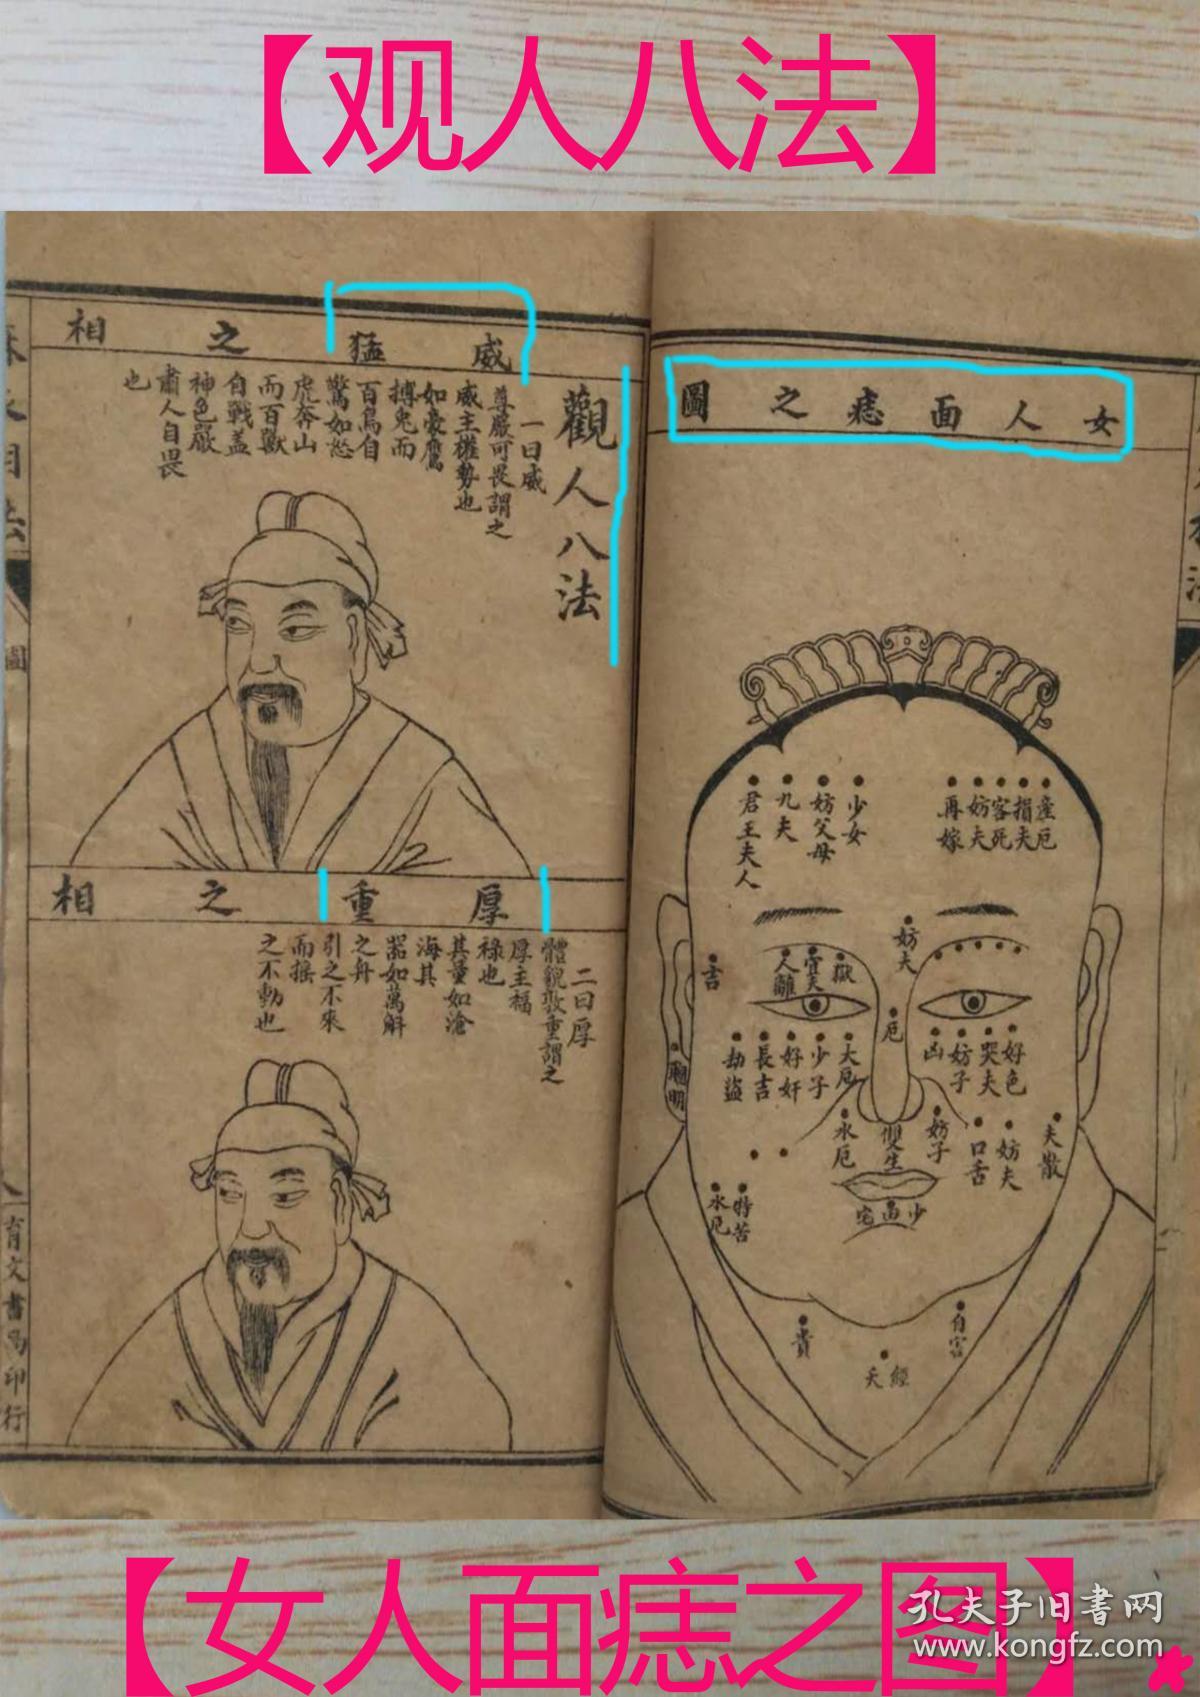 【观人八法】
女人面痣之圖
產厄
損夫
客死
妨夫
再嫁
少女
妨父母
九夫
君王夫人
妨夫
獄
官夫
人離
吉
厄
好色
哭夫
妨子
凶
大厄
少子
好奸
長吉
劫盜
聰明
夫散
妨夫
口舌
妨子
雙生
水厄
特苦
水厄
少
宅
自害
經
天
貴
威猛之相
觀人八法
一曰威
尊嚴可畏謂之
威主權勢也
如豪鷹
搏兔而
百鳥自
驚如怒
虎奔山
而百獸
自戰蓋
神色嚴
肅人自畏
也
厚重之相
二曰厚
體貌敦重謂之
厚主福
祿也
其量如滄
海其
器如萬斛
之舟
引之不來
而搖
之不動也
圖
育文書局印行
【女人面痣之图】
孔夫子旧書网
www.kongfz.com